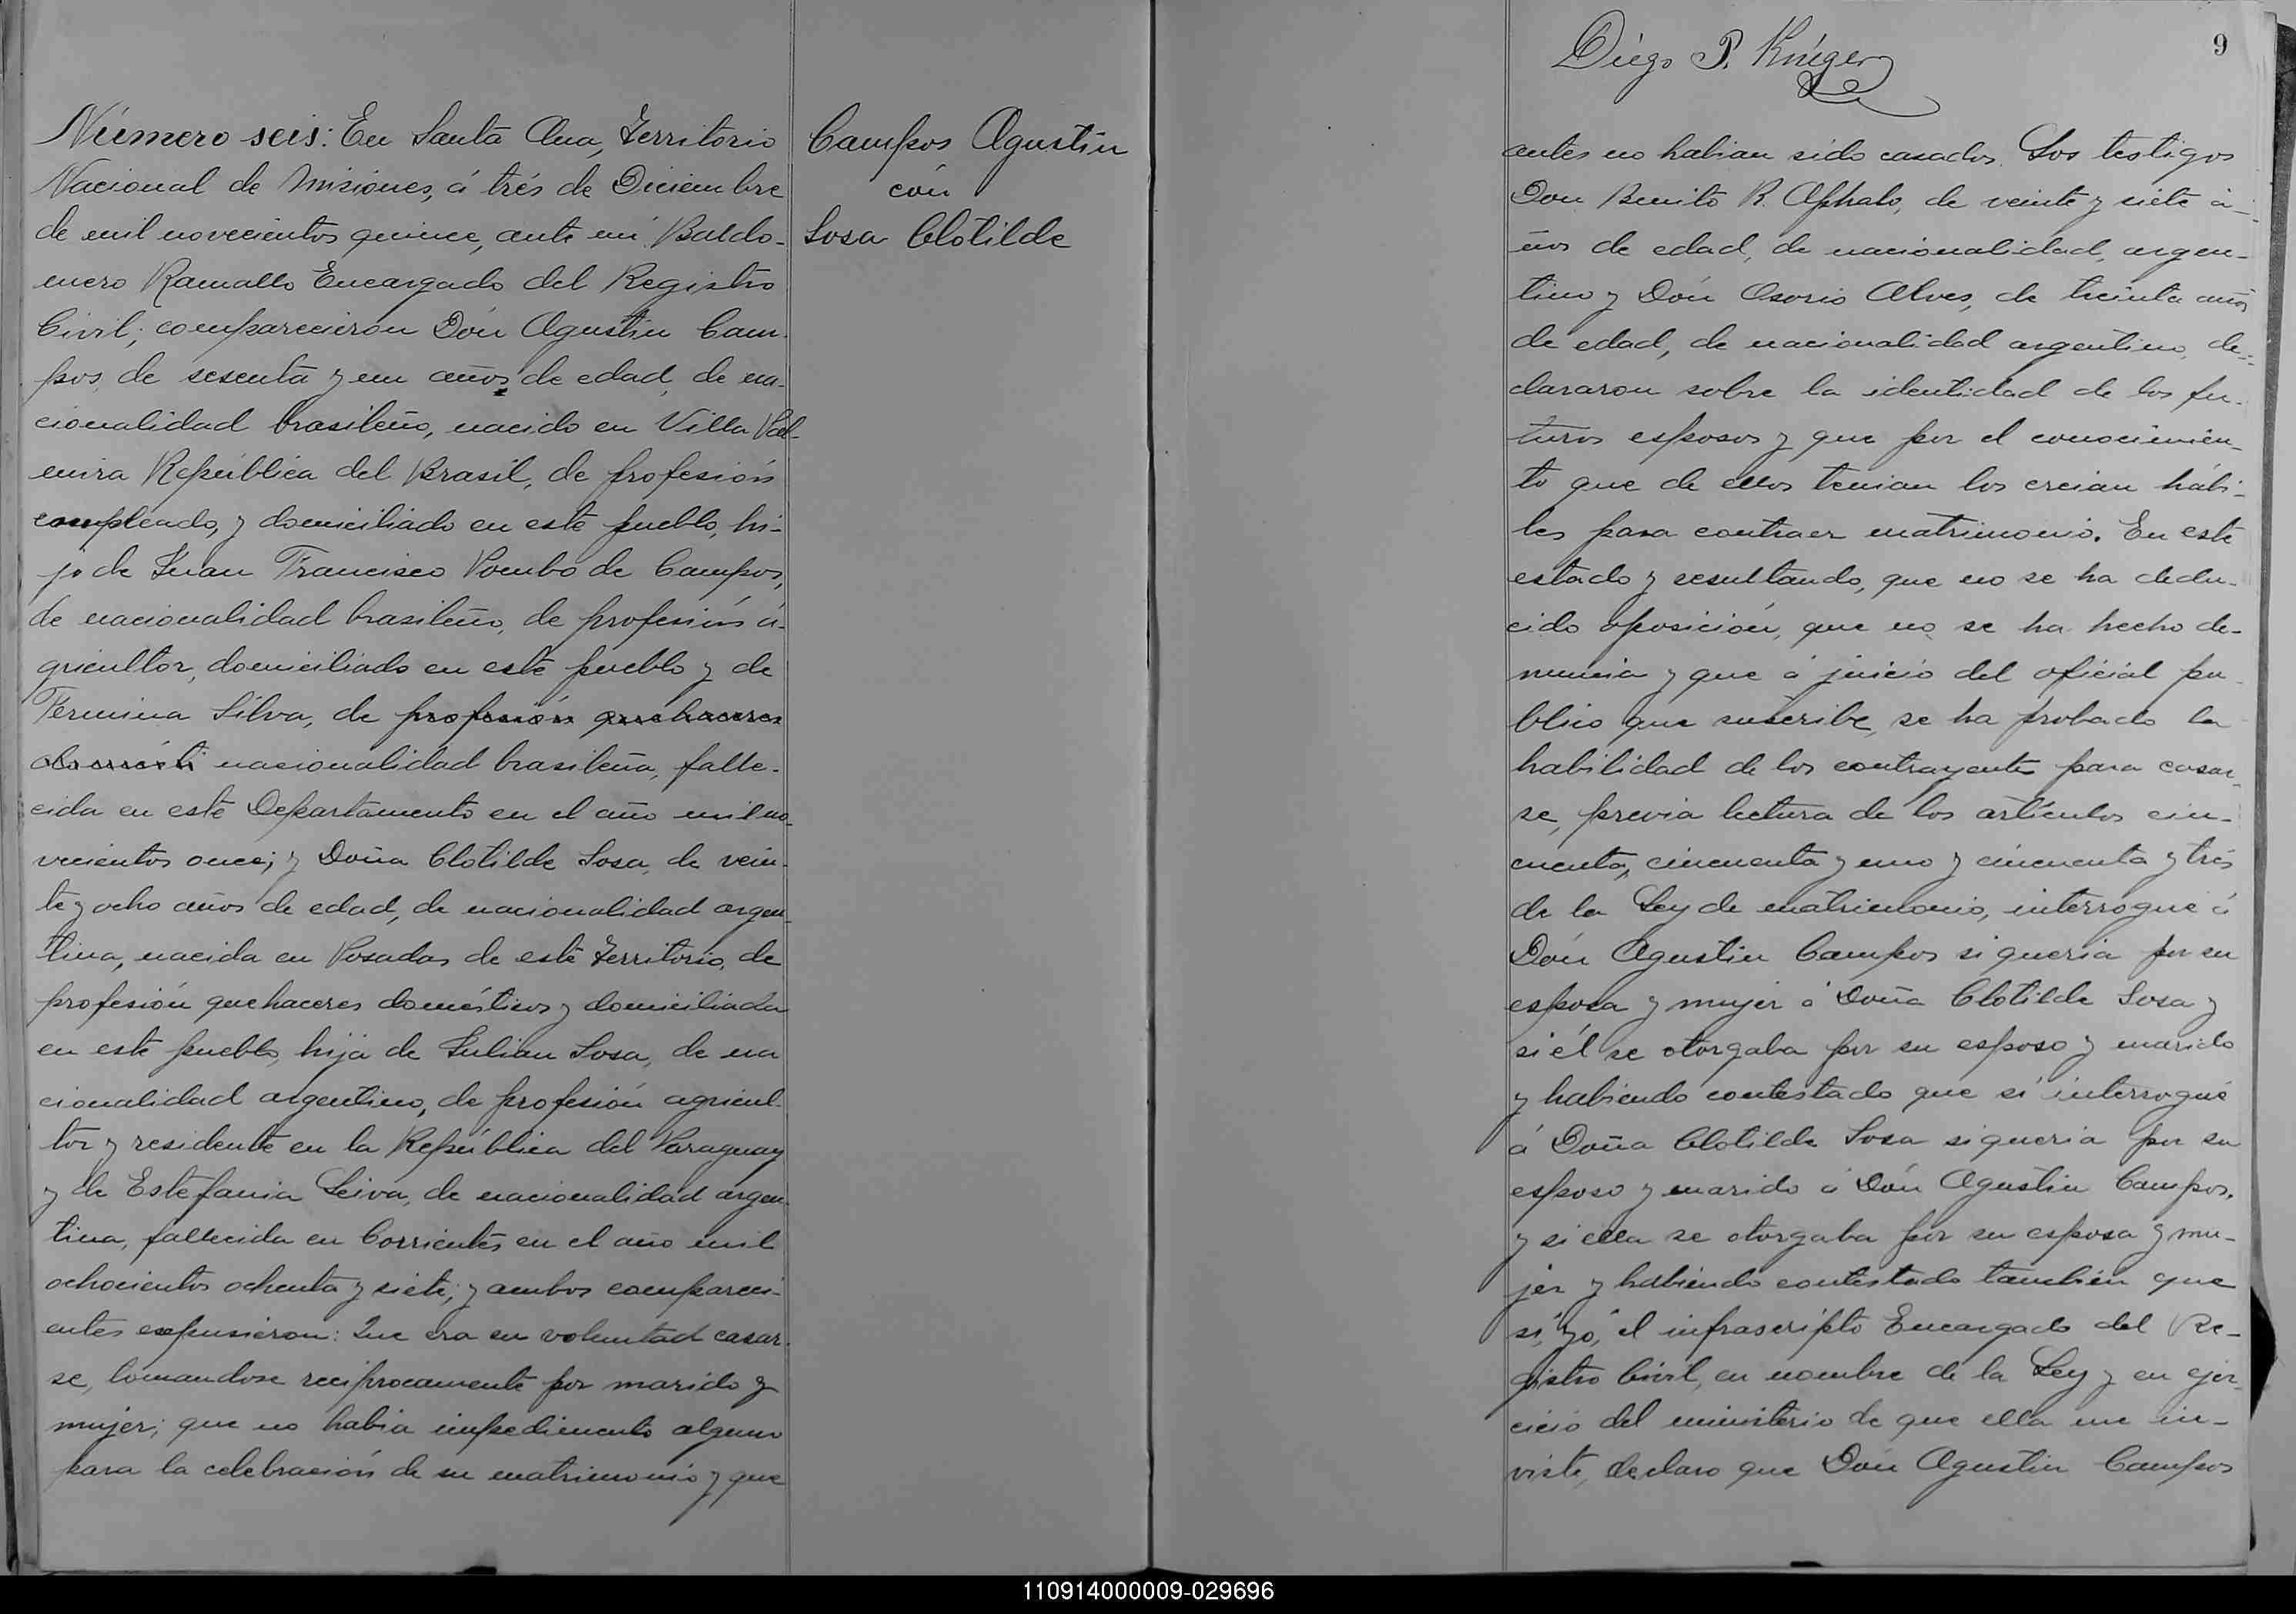 Número seis: En Santa Ana, Territorio
Nacional de Misiones, á trés de Diciembre
de mil novecientos quince, ante mí Baldo-
mero Ramallo Encargado del Registro
Civil; comparecieron Dón Agustin Cam-
pos, de sesenta y un años de edad, de na-
cionalidad brasileño, nacido en Villa Pal-
mira República del Brasil, de profesión
empleado, y domiciliado en este pueblo, hi-
jo de Juan Francisco Pombo de Campos,
de nacionalidad brasileño, de profesión a-
gricultor, domiciliado en este pueblo y de
Fermina Silva, de profesión quehaceres
domésti nacionalidad brasileña, falle-
cida en este Departamento en el año mil no-
vecientos once; y Doña Clotilde Sosa, de vein-
te y ocho años de edad, de nacionalidad argen-
tina, nacida en Posadas de este Territorio, de
profesión quehaceres domésticos y domiciliada
en este pueblo, hija de Julian Sosa, de na
cionalidad argentino, de profesión agricul-
tor y residente en la República del Paraguay
y de Estefania Leiva, de nacionalidad argen-
tina, fallecida en Corrientes en el año mil
ochocientos ochenta y siete; y ambos compareci-
entes expusieron: Que era su voluntad casar-
se, tomandose reciprocamente por marido y
mujer; que no habia impedimento alguno
para la celebración de su matrimonio y que
Campos Agustin
cón
Sosa Clotilde
Diego P. Krüger
9
antes no habian sido casados. Los testigos
Don Benito R. Aphalo, de veinte y siete a-
ños de edad, de nacionalidad, argen-
tino y Dón Osorio Alves, de treinta años
de edad, de nacionalidad argentino, de-
clararon sobre la identidad de los fu-
turos esposos y que por el conocimien-
to que de ellos tenian los creian hábi-
les para contraer matrimonio. En este
estado y resultando, que no se ha dedu-
cido oposición, que no se ha hecho de-
nuncia y que á juicio del oficial pu-
blico que suscribe, se ha probado la
habilidad de los contrayentes para casar-
se, previa lectura de los artículos cin-
cuenta, cincuenta y uno y cincuenta y tres
de la Ley de matrimonio, interrogué á
Dón Agustin Campos si queria por su
esposa y mujer á Doña Clotilde Sosa y
si él se otorgaba por su esposo y marido
y habiendo contestado que sí interrogué
á Doña Clotilde Sosa si queria por su
esposo y marido á Dón Agustin Campos,
y si ella se otorgaba por su esposa y mu-
jer y habiendo contestado tambien que
sí, yo, el infrascripto Encargado del Re-
gistro Civil, en nombre de la Ley y en ejer-
cicio del ministerio de que ella me in-
viste, declaro que Dón Agustin Campos
110914000009-029696